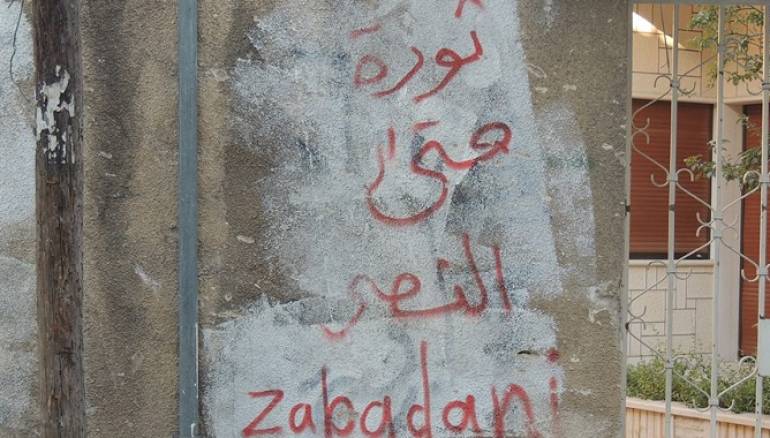 ثورة
حتى
النصر
zabadani